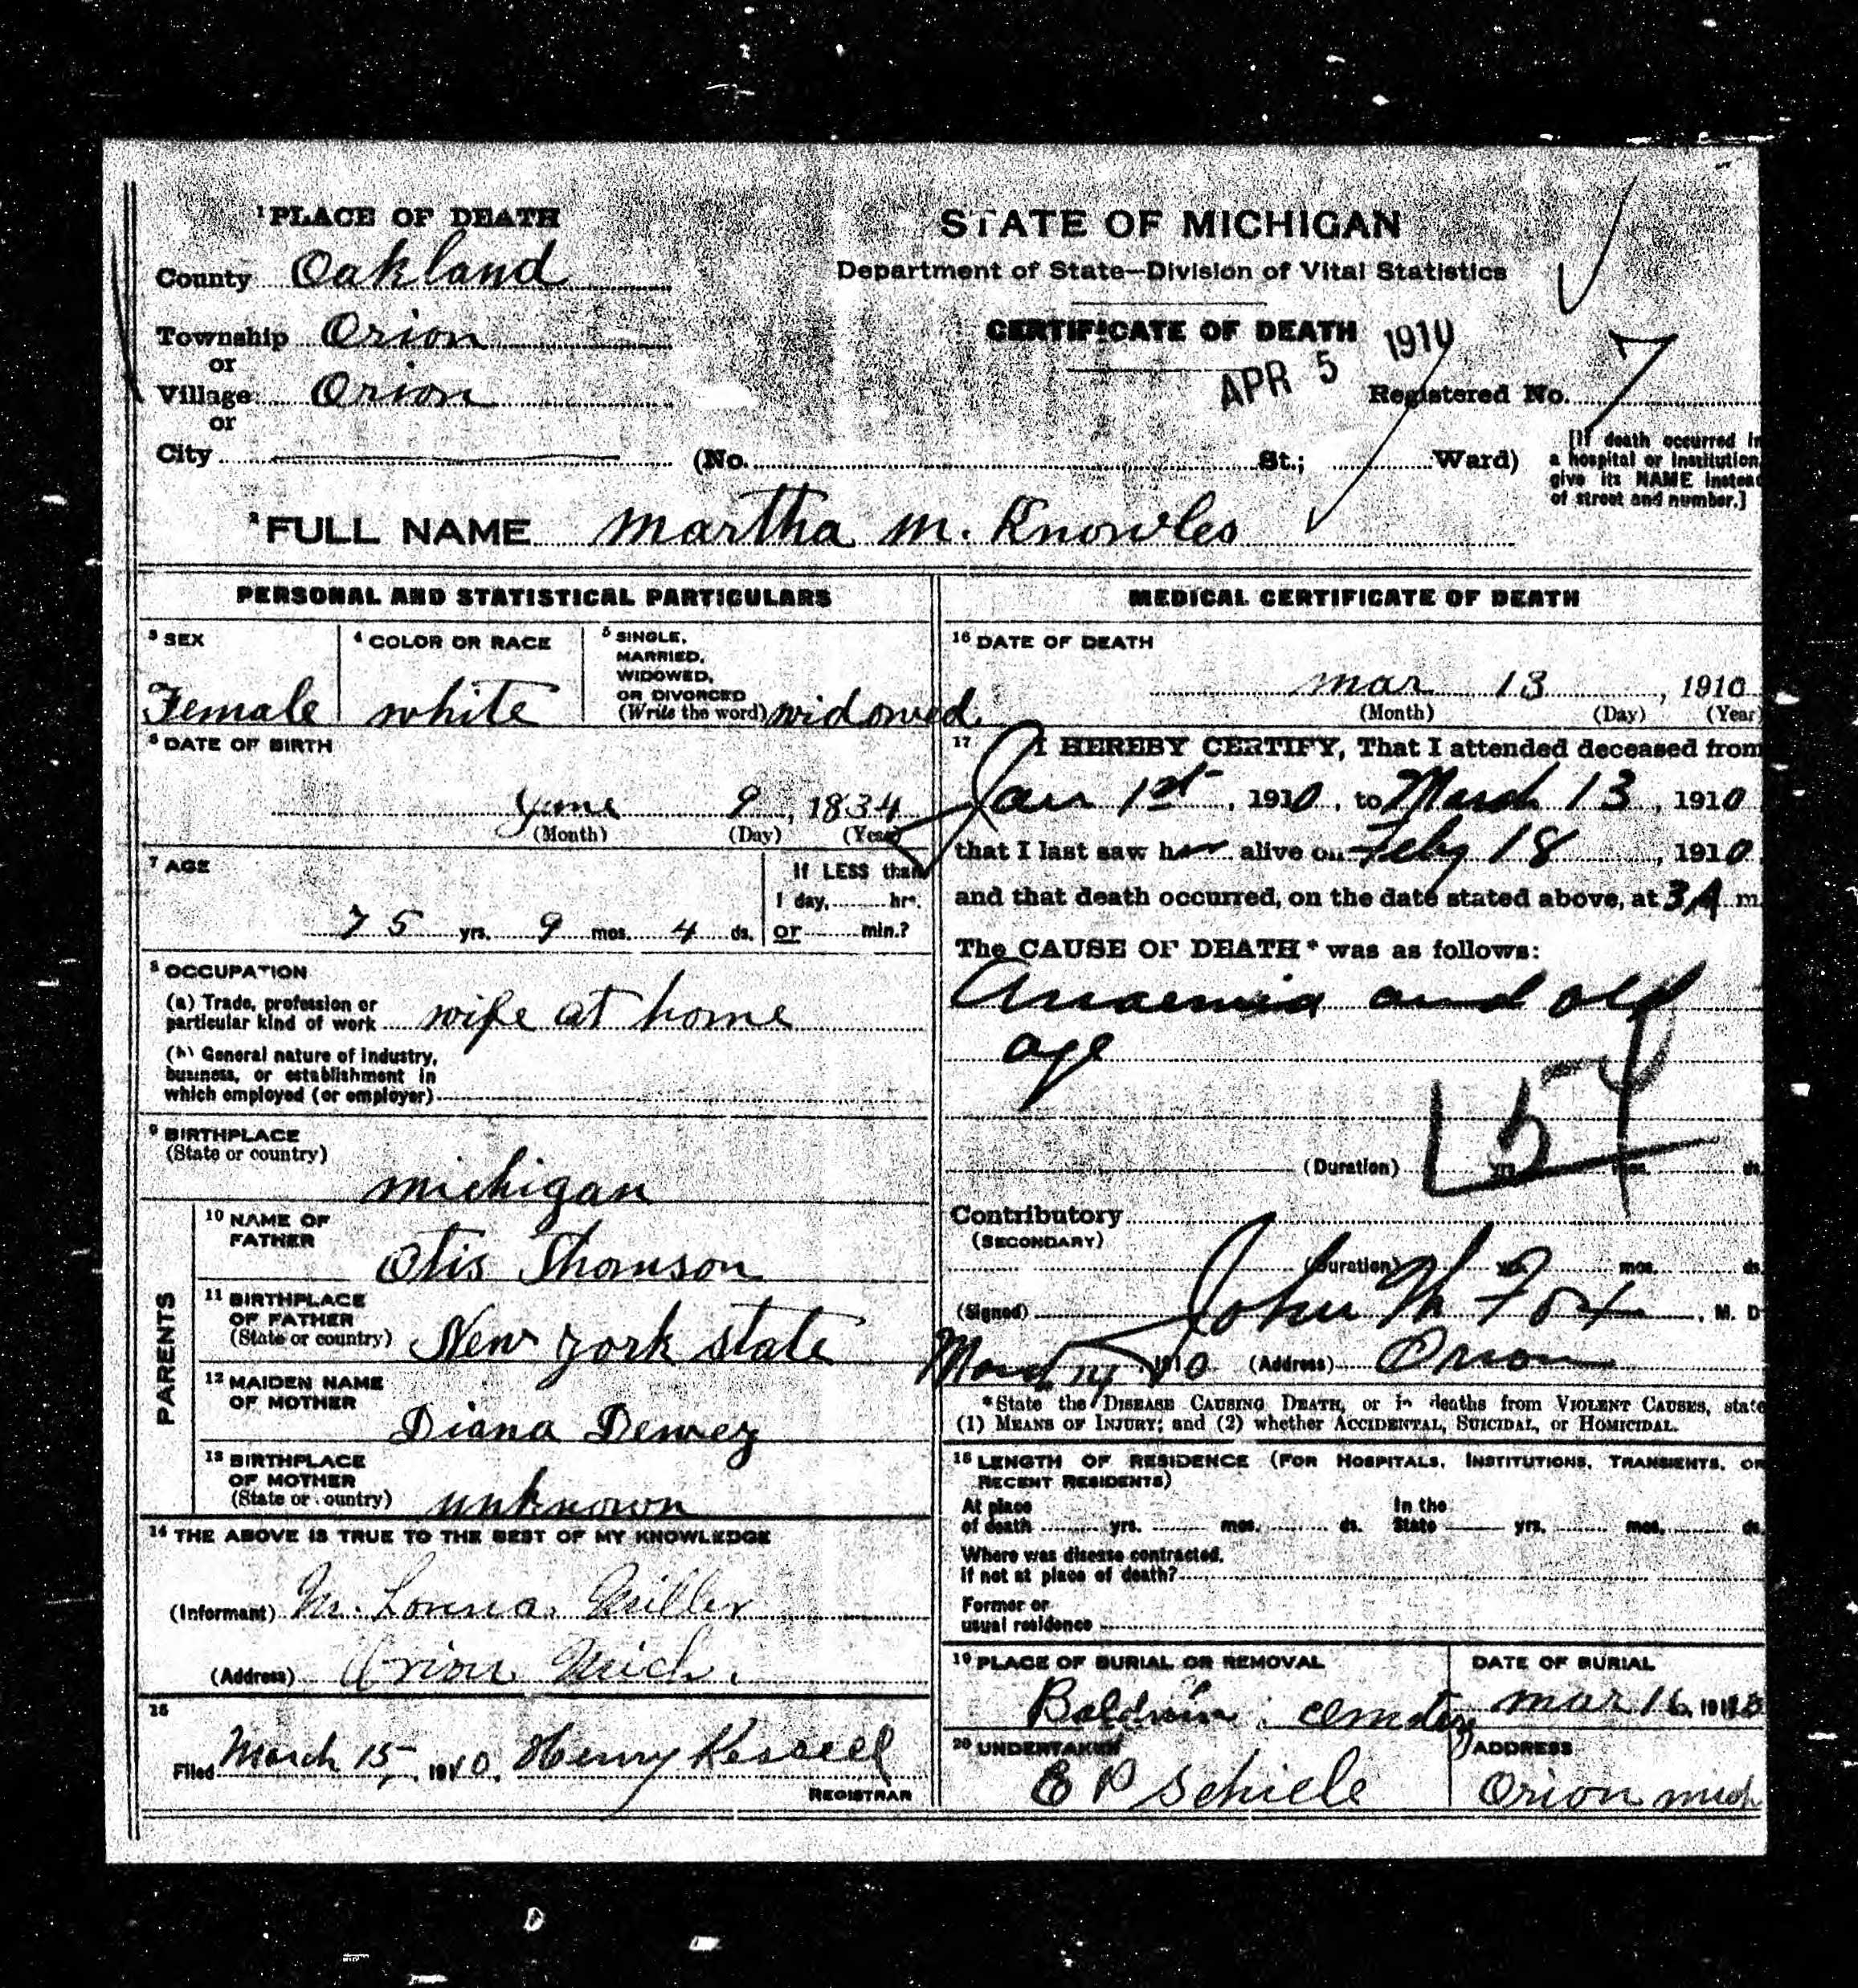 1 PLACE OF DEATH
County Oakland
Township Orion
or
Village Orion
or
City
STATE OF MICHIGAN
Department of State—Division of Vital Statistics
CERTIFICATE OF DEATH
APR 5 1910
Registered No. 7
(No. St.; Ward)
[If death occurred in
a hospital or institution,
give its NAME instead
of street and number.]
2 FULL NAME Martha M. Knowles
PERSONAL AND STATISTICAL PARTICULARS
3 SEX
Female
4 COLOR OR RACE
white
5 SINGLE,
MARRIED,
WIDOWED,
OR DIVORCED
(Write the word) widowed
6 DATE OF BIRTH
June 9, 1834
(Month) (Day) (Year)
7 AGE
75 yrs. 9 mos. 4 ds.
If LESS than
1 day, hrs.
or min.?
8 OCCUPATION
(a) Trade, profession or
particular kind of work wife at home
(b) General nature of industry,
business, or establishment in
which employed (or employer)
9 BIRTHPLACE
(State or country)
Michigan
PARENTS
10 NAME OF
FATHER
Otis Thomson
11 BIRTHPLACE
OF FATHER
(State or country) New York state
12 MAIDEN NAME
OF MOTHER
Diana Dewey
13 BIRTHPLACE
OF MOTHER
(State or country) unknown
14 THE ABOVE IS TRUE TO THE BEST OF MY KNOWLEDGE
(Informant) M. Miller
(Address) Orion Mich.
15
Filed March 15, 1910, Henry
REGISTRAR
MEDICAL CERTIFICATE OF DEATH
16 DATE OF DEATH
Mar 13, 1910
(Month) (Day) (Year)
17 I HEREBY CERTIFY, That I attended deceased from
Jan 1st, 1910, to March 13, 1910
that I last saw her alive on Feby 18, 1910
and that death occurred, on the date stated above, at 3 A m.
The CAUSE OF DEATH* was as follows:
Anaemia and old
age
54
(Duration) yrs. mos. ds.
Contributory
(SECONDARY)
(Duration) yrs. mos. ds.
(Signed) John Fox, M. D
March 14 1910 (Address) Orion
*State the DISEASE CAUSING DEATH, or in deaths from VIOLENT CAUSES, state
(1) MEANS OF INJURY; and (2) whether ACCIDENTAL, SUICIDAL, OR HOMICIDAL.
18 LENGTH OF RESIDENCE (FOR HOSPITALS, INSTITUTIONS, TRANSIENTS, OR
RECENT RESIDENTS)
At place
of death yrs. mos. ds.
In the
State yrs. mos. ds.
Where was disease contracted,
if not at place of death?
Former or
usual residence
19 PLACE OF BURIAL OR REMOVAL
Baldwin cemetery
DATE OF BURIAL
Mar 16, 1910
20 UNDERTAKER
E P Schiele
ADDRESS
Orion Mich